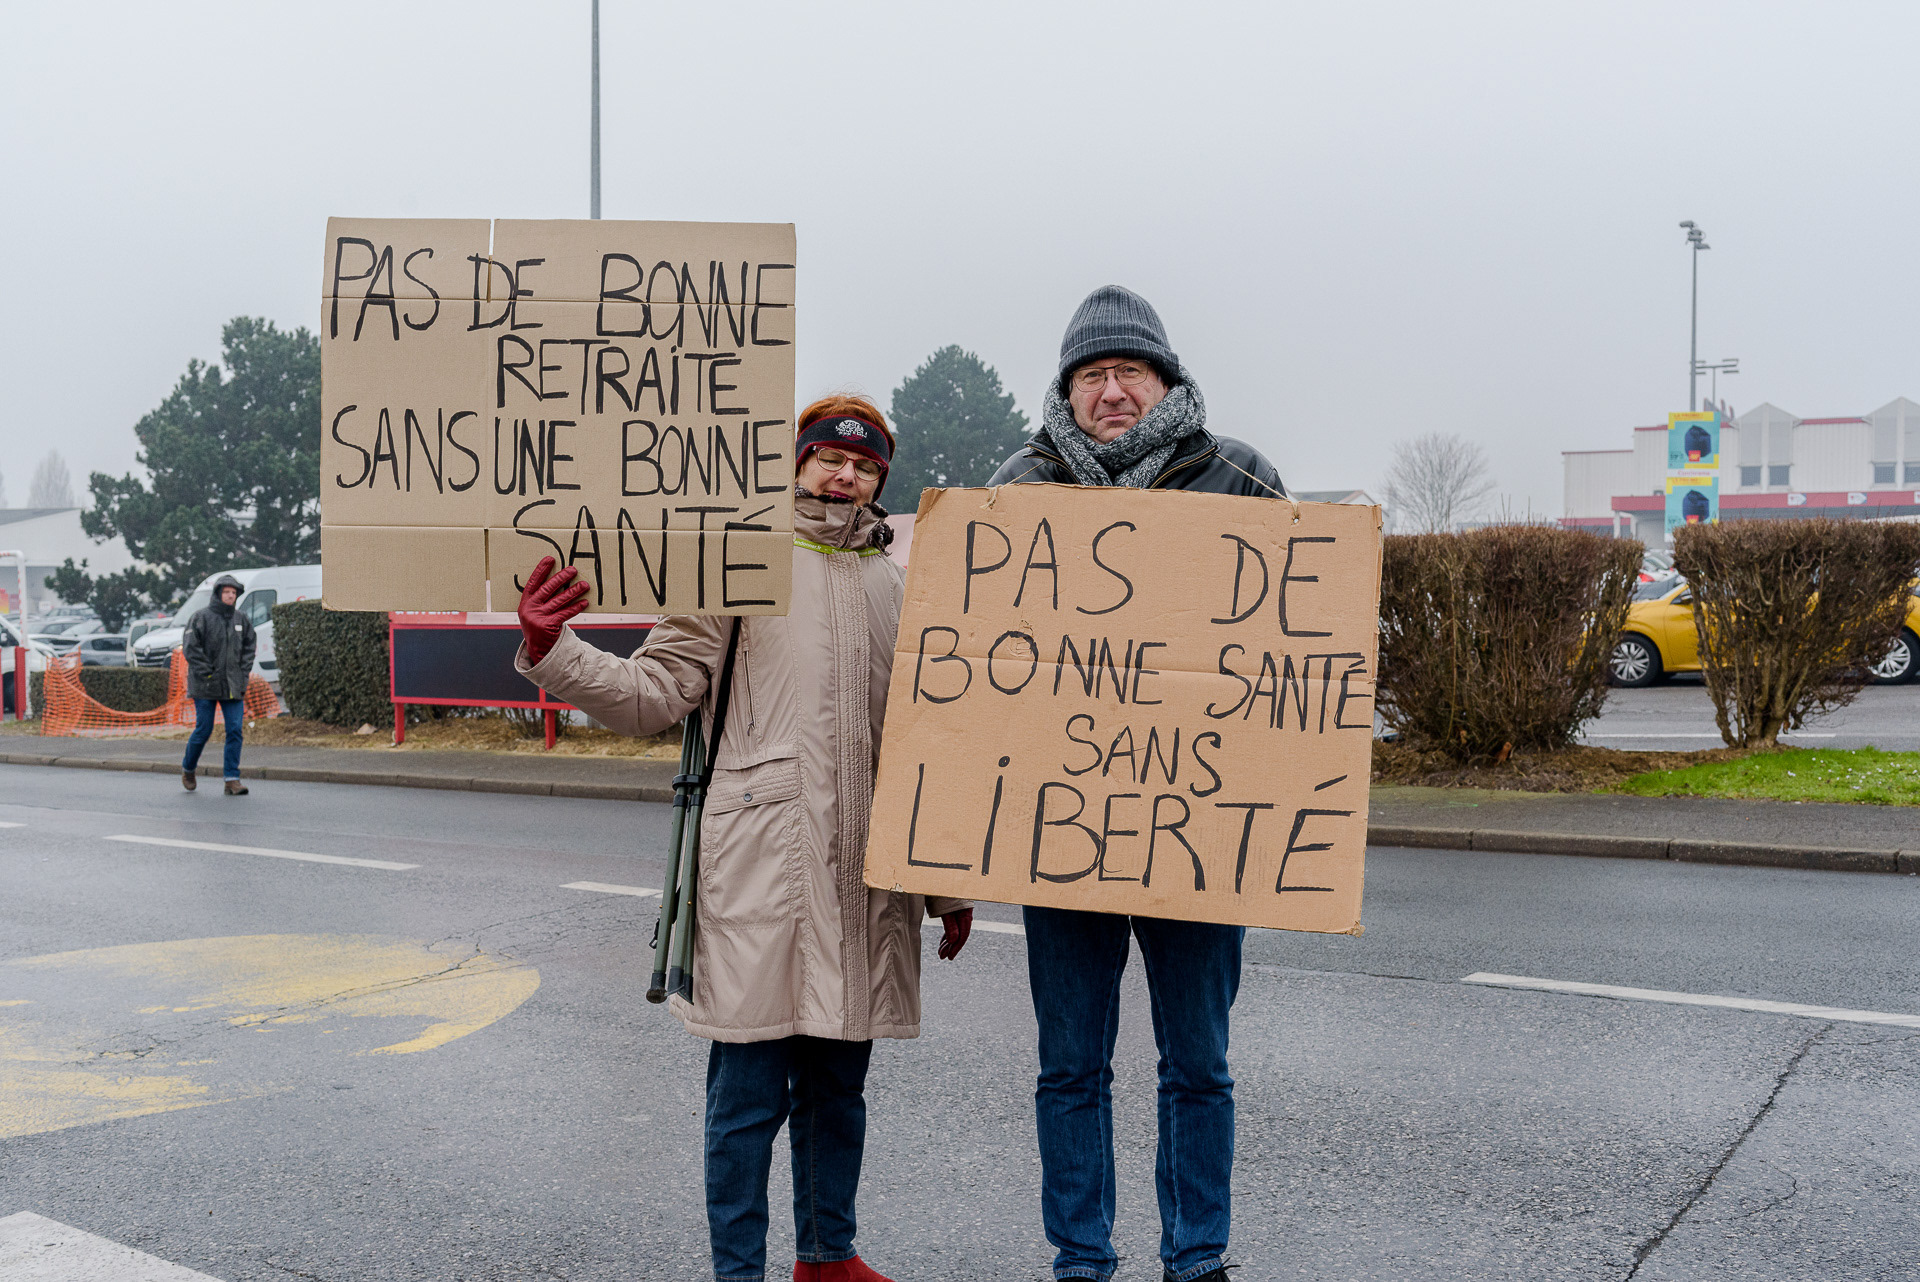 PAS DE BONNE
RETRAITE
SANS UNE BONNE
SANTÉ
PAS DE
BONNE SANTÉ
SANS
LIBERTÉ